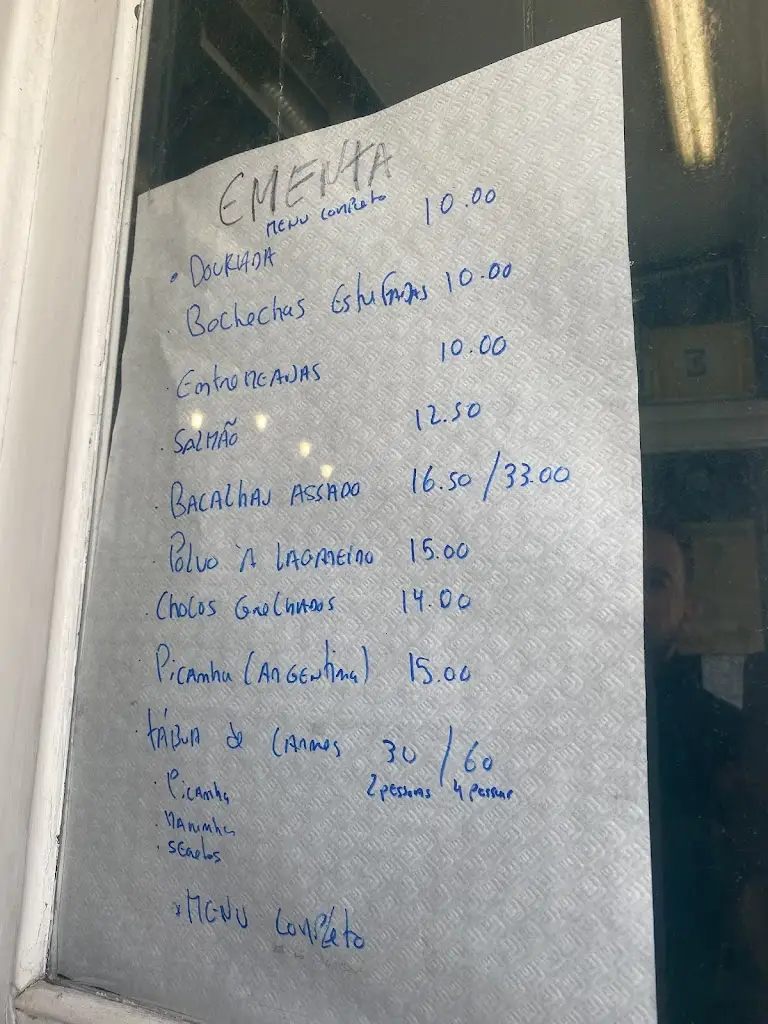 EMENTA
MENU COMPLETO
• DOURADA 10.00
· Bochechas Estufadas 10.00
· EntreMEADAS 10.00
· SALMÃO 12.50
· BACALHAU ASSADO 16.50 / 33.00
· Polvo À LAGAREIRO 15.00
· Chocos Grelhados 14.00
· Picanha (ARGENtina) 15.00
· tÁBUA de CARNES 30 / 60
2 pessoas 4 pessoas
· Picanha
· Maminha
· Secretos
*MENU COMPLETO
3